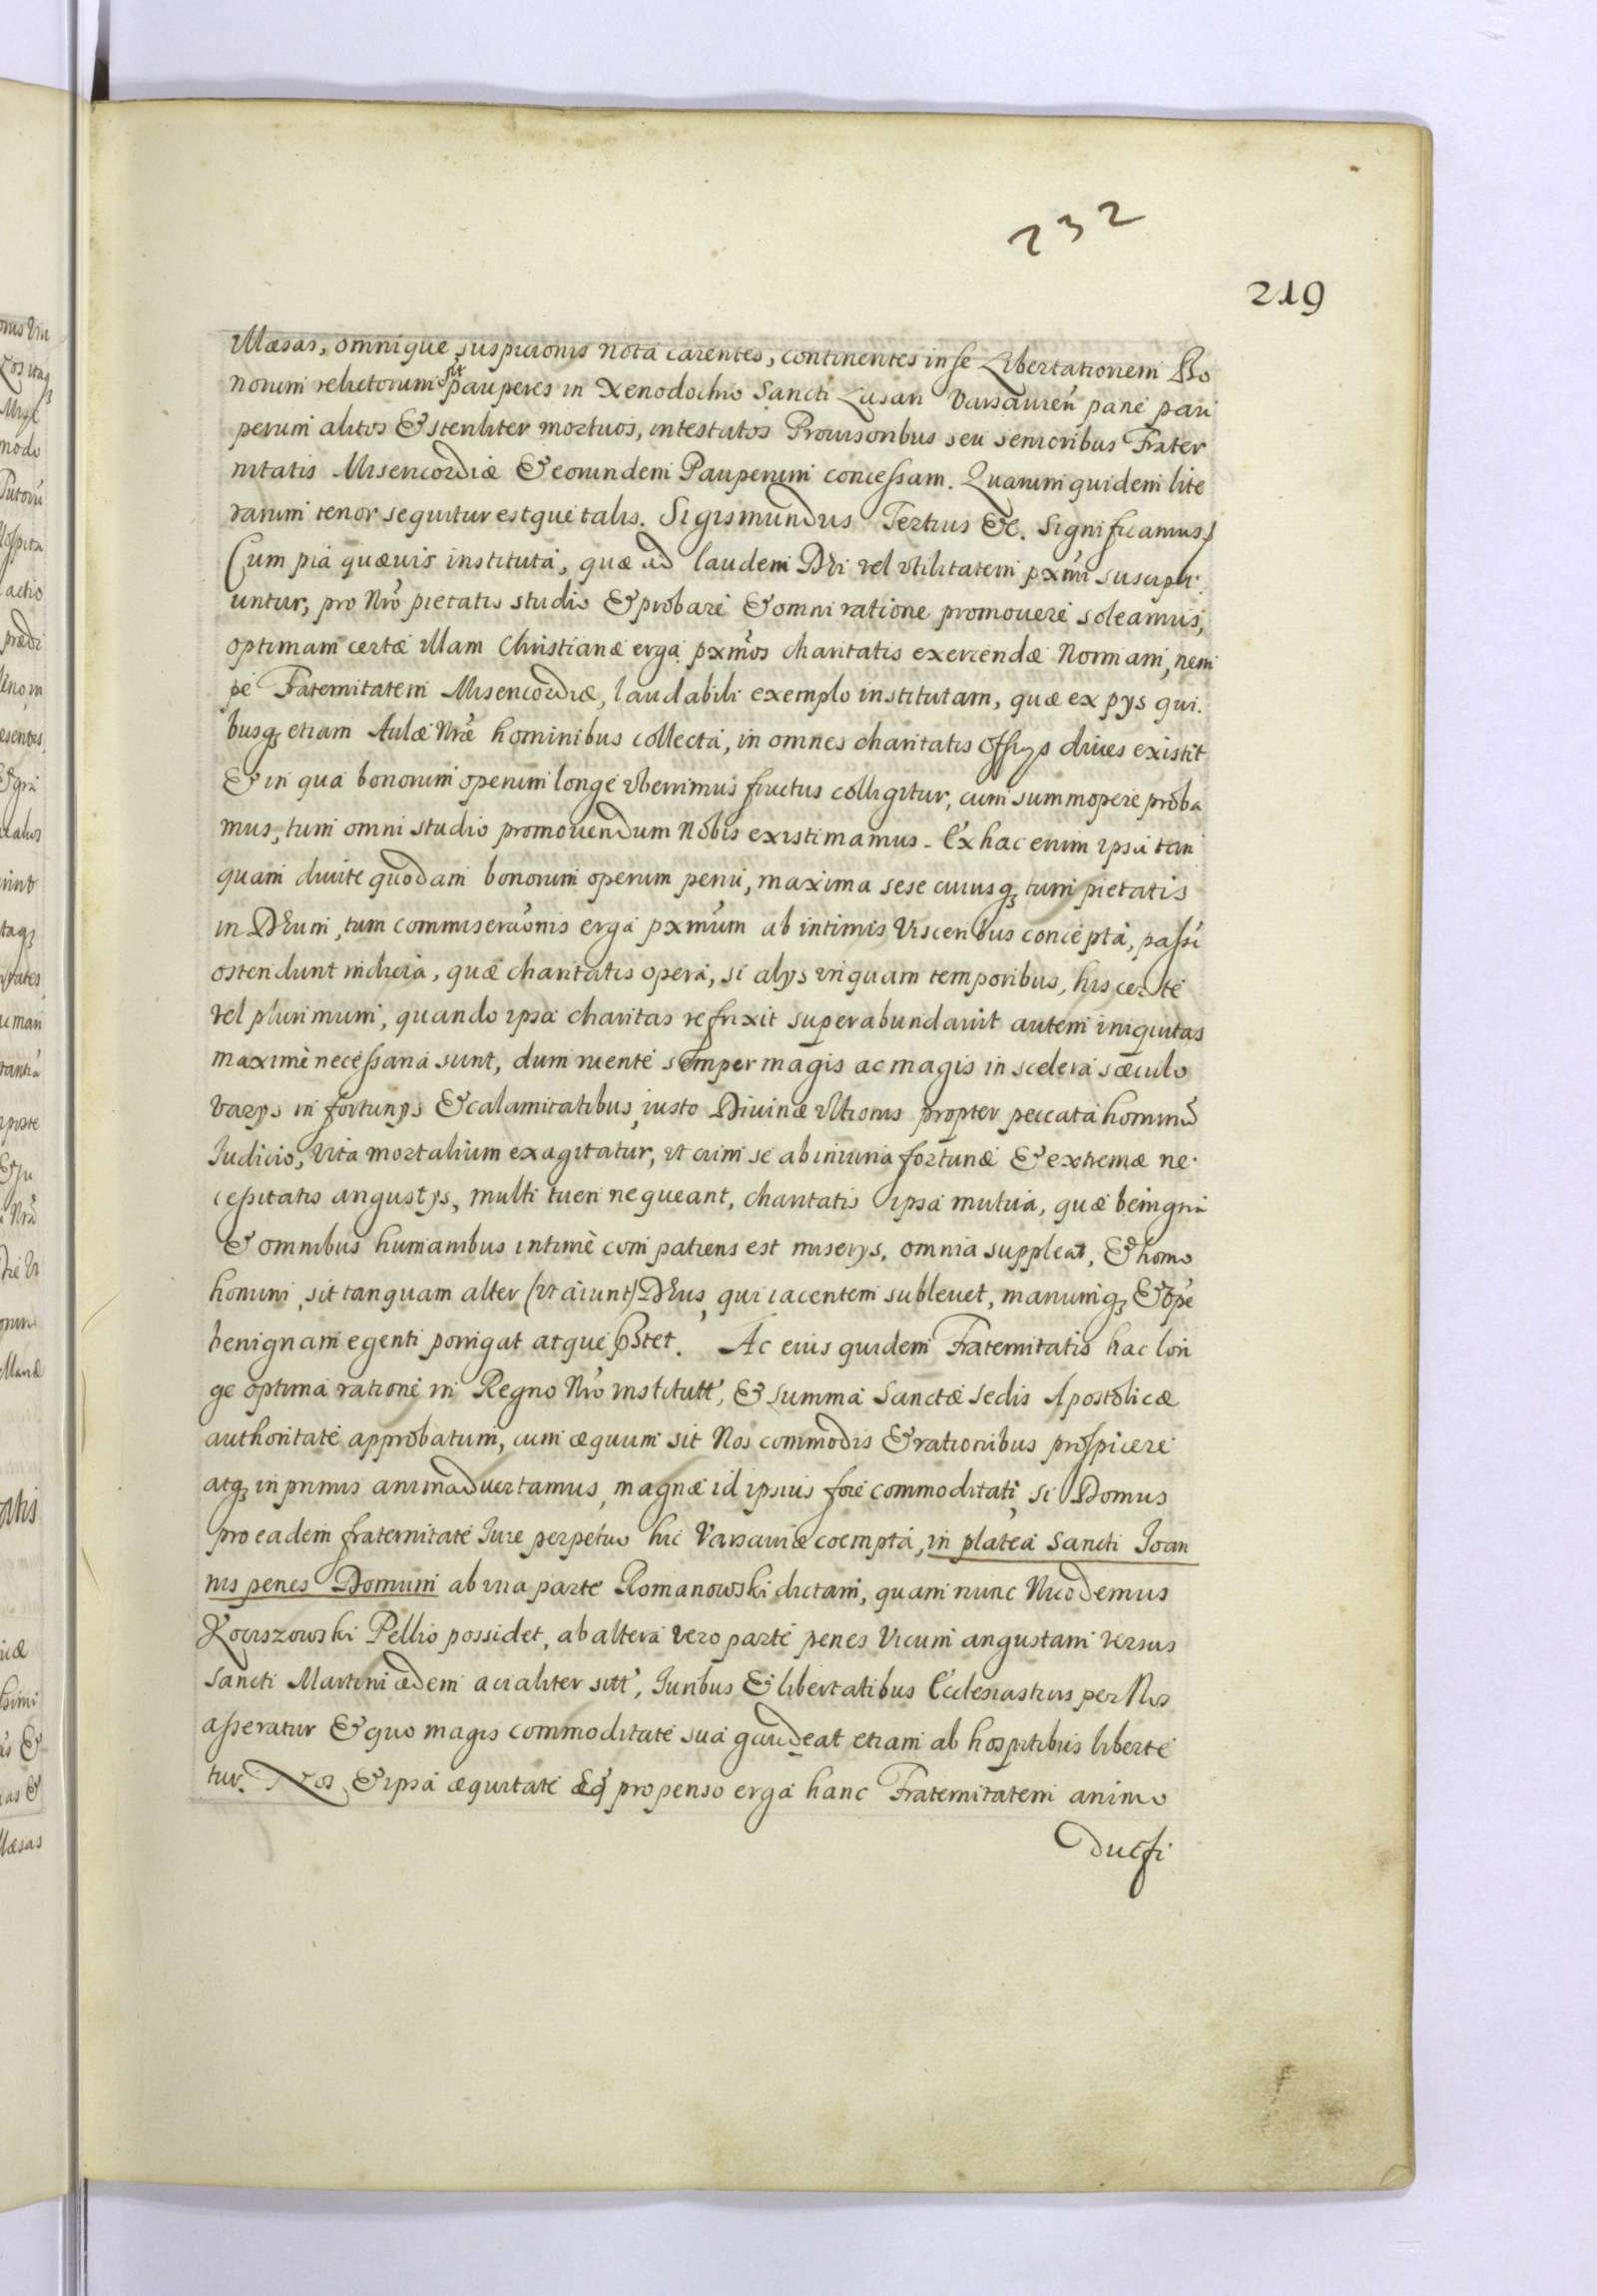 232
219
illæsas, omnique suspicionis nota carentes, continentes in se Libertationem Bo
norum relictorum pauperes in Xenodochio Sancti Lazari Varsavien̄ pane pau
perum alitos & steriliter mortuos, intestatos Provisoribus seu senioribus Frater
nitatis Misericordiæ & eorundem Pauperum concessam. Quarum quidem lite
rarum tenor sequitur estque talis. Sigismundus Tertius &c. Significamus
Cum pia quævis instituta, quæ ad laudem DEi vel vtilitatem pxmi suscipi
untur, pro Nr̄o pietatis studio & probare & omni ratione promouere soleamus,
optimam certæ illam Christianæ erga pxm̄os charitatis exercendæ Normam, nem
pe Fraternitatem Misericordiæ, laudabili exemplo institutam, quæ ex pys qui.
busq; etiam Aulæ Nr̄æ hominibus collecta, in omnes charitatis offiys diues existit
& in qua bonorum operum longe vberrimus fructus colligitur, cum summopere proba
mus, tum omni studio promouendum Nobis existimamus. Ex hac enim ipsa tan
quam diuite quodam bonorum operum penu, maxima sese cuiusq; tum pietatis
in DEum, tum commiseraōnis erga pxmūm ab intimis visceribus concepta, passi
ostendunt indicia, quæ charitatis opera, si alys vnquam temporibus, his certe
vel plurimum, quando ipsa charitas refrixit superabundauit autem iniquitas
maximè necessaria sunt, dum ruente semper magis ac magis in scelera sæculo
varys infortunys & calamitatibus, iusto Diuinæ vltionis propter peccata hominū
Iudicio, vita mortalium exagitatur, vt cum se ab iniuria fortunæ & extremæ ne.
cessitatis angustys, multi tueri nequeant, charitatis ipsa mutua, quæ benigna
& omnibus humanibus intimè compatiens est miserys, omnia suppleat, & homo
homini, sit tanquam alter (vt aiunt) DEus, qui iacentem subleuet, manumq; & opē
benignam egenti porrigat atque pstet. Ac eius quidem Fraternitatis hac lon
ge optima ratione in Regno Nr̄o institutt̄, & summa Sanctæ Sedis Apostolicæ
authoritate approbatum, cum æquum sit Nos commodis & rationibus prospicere
atq; in primis animaduertamus, magnæ id ipsius fore commoditati, si Domus
pro eadem fraternitate Iure perpetuo hic Varsaviæ coempta, in platea Sancti Ioan
nis penes Domum ab vna parte Romanowski dictam, quam nunc Nicodemus
Kociszowski Pellio possidet, ab altera vero parte penes vicum angustam versus
Sancti Martini ædem acialiter sitt̄, Iuribus & libertatibus Ecclesiasticis per Nos
asseratur & quo magis commoditate sua gaudeat etiam ab hospitibus liberte
tur. Nos & ipsa æquitate propenso erga hanc Fraternitatem animo
Ducti